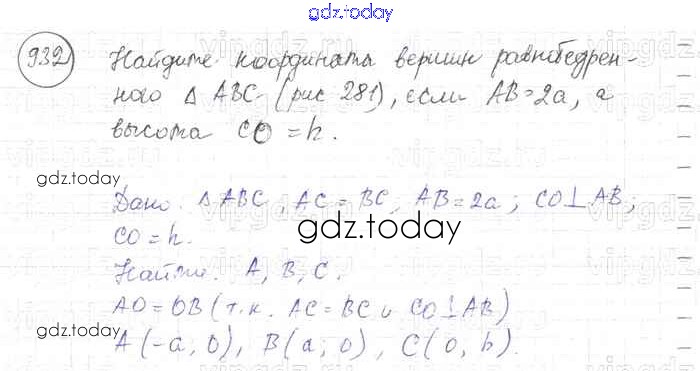 gdz.today
932) Найдите координата вершин равнобедрен-
ного Δ ABC (рис 281), если AB=2a, а
высота CO = h.
gdz.today
Дано: Δ ABC AC = BC, AB=2a; CO⊥AB;
gdz.today
CO=h.
Найти: A, B, C.
AO=OB (т.к. AC=BC и CO⊥AB)
gdz.today
A(-a, 0), B(a; 0), C(0, h).